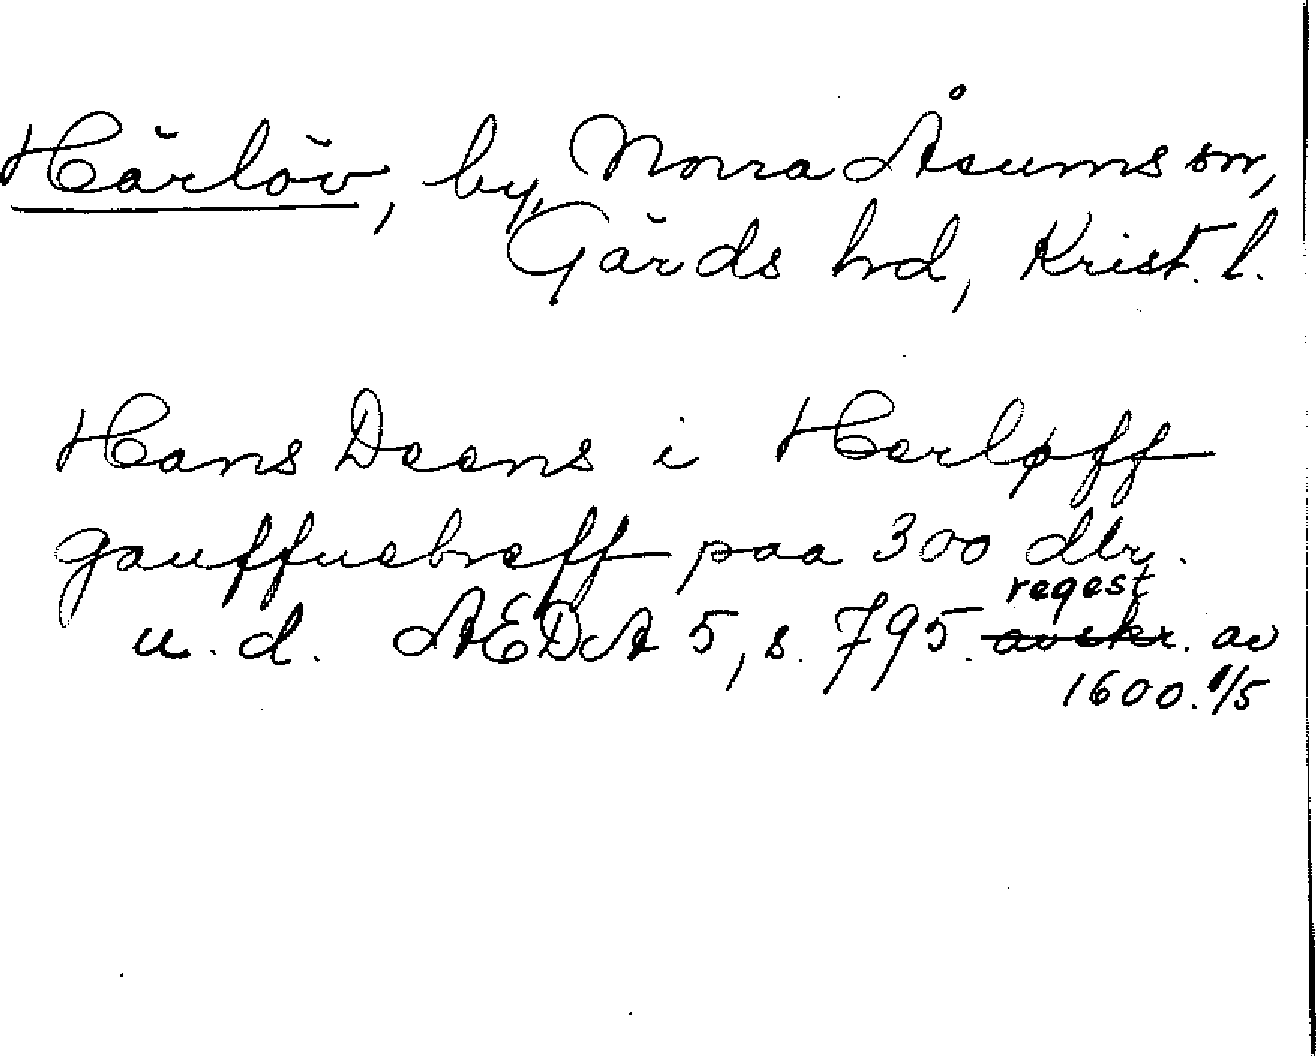 Härlöv, by, Norra Åsums sn,
Gärds hd, Krist. l.
Hans Deens i Herløff
gauffuebreff paa 300 dlr.
u. d. AEDA 5, s. 795. regest av
1600.1/5